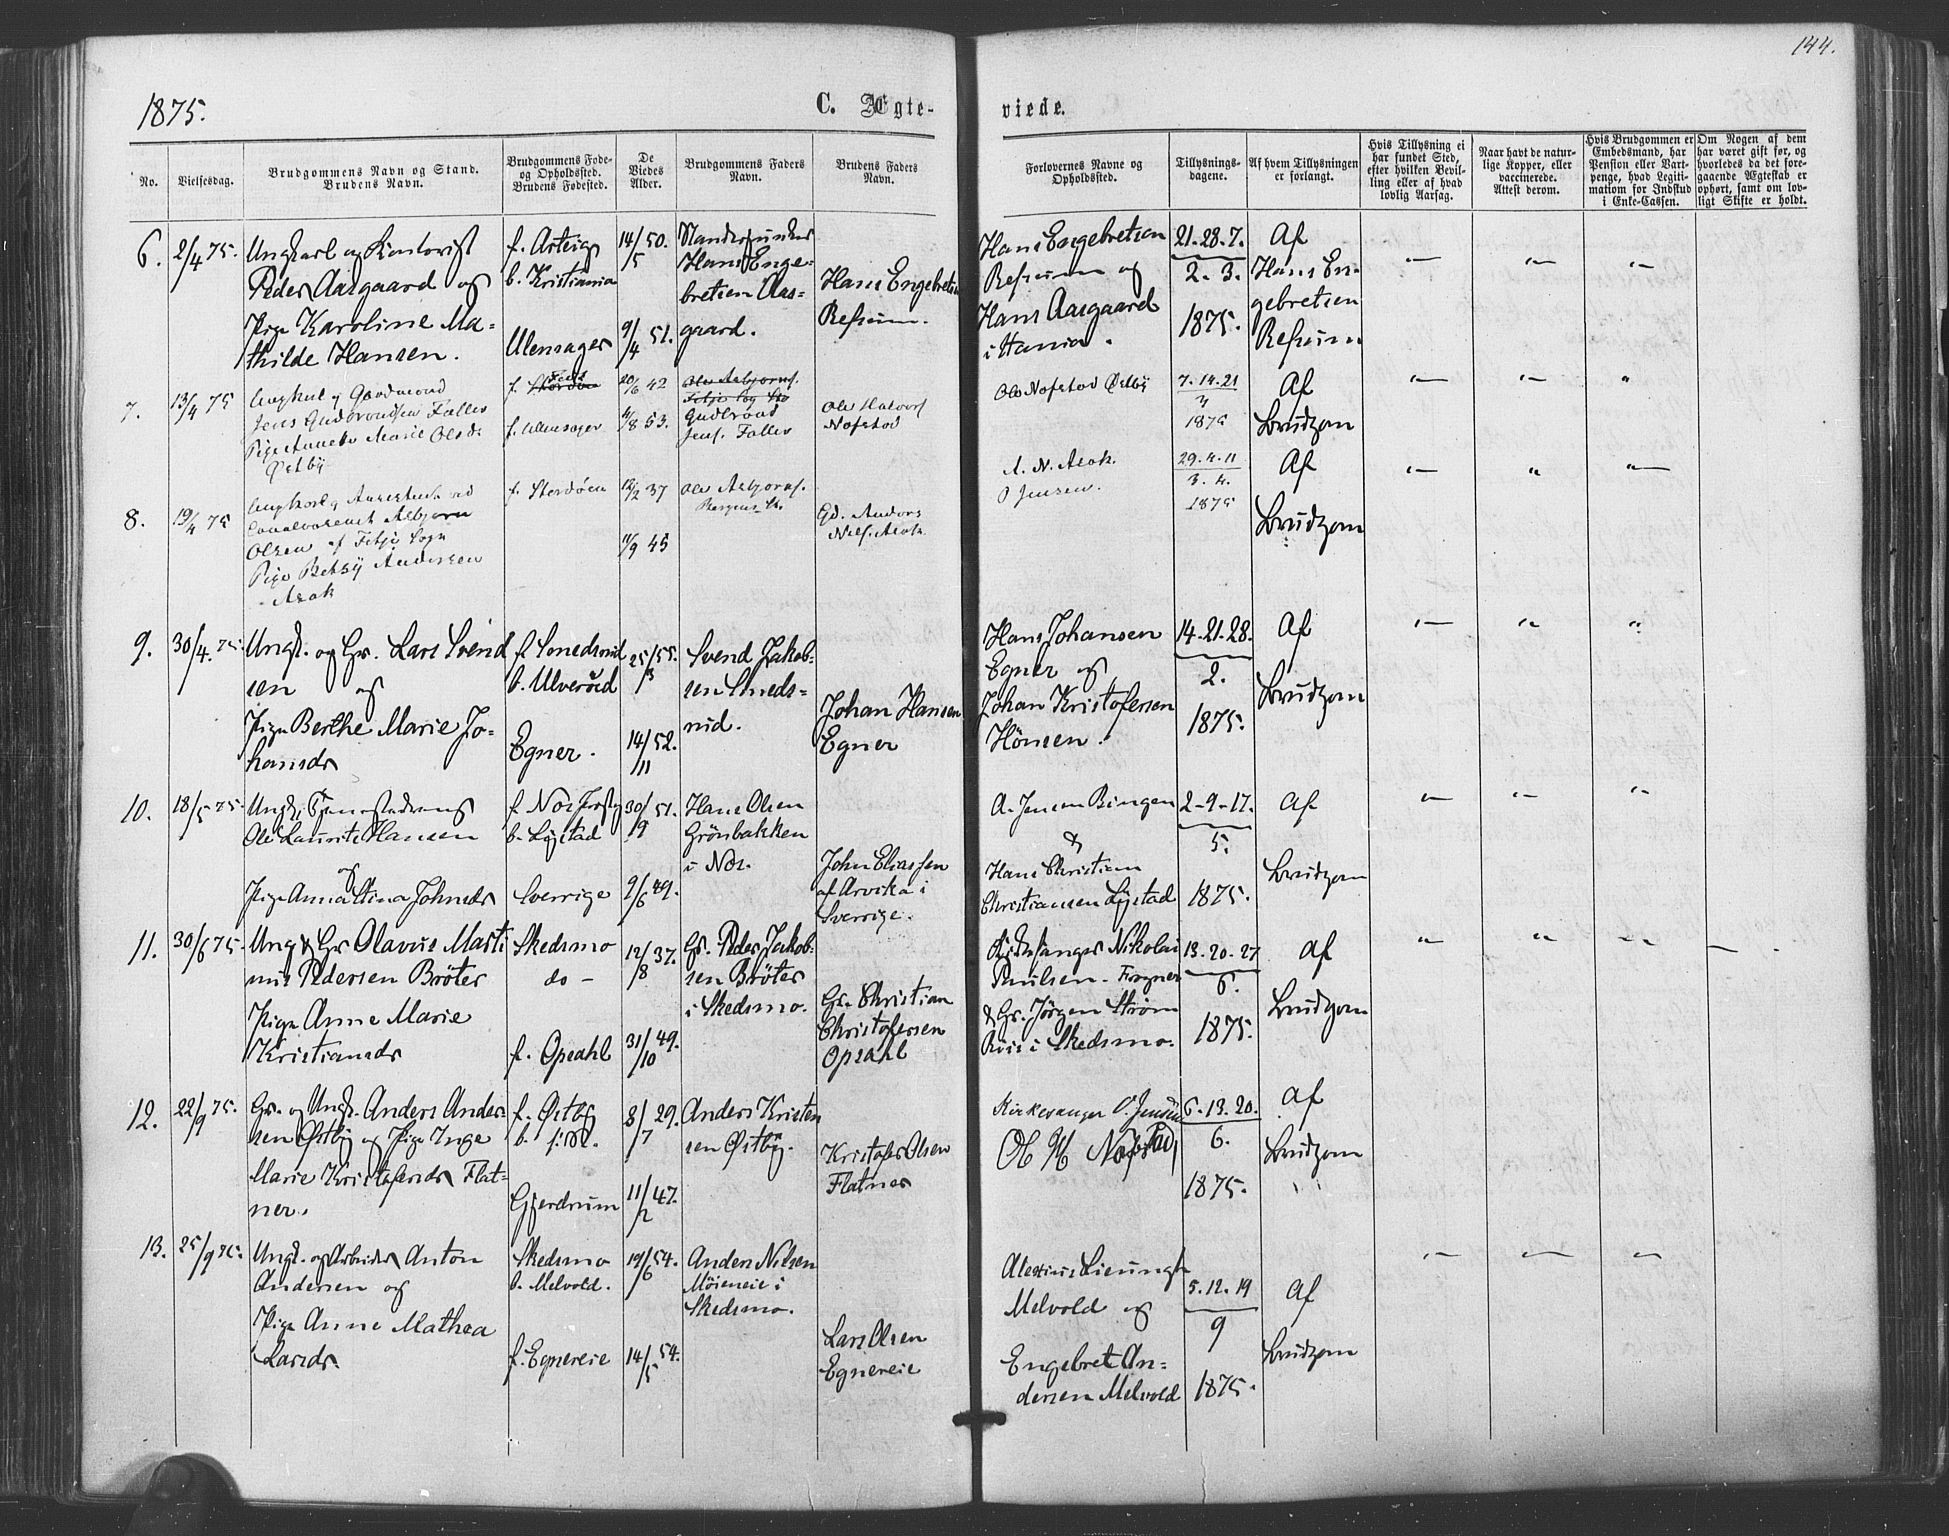 144.
1875.
C. Ægte-
viede.
No.
Vielsesdag.
Brudgommens Navn og Stand.
Brudens Navn.
Brudgommens Føde-
og Opholdssted.
Brudens Fødested.
De
Viedes
Alder.
Brudgommens Faders
Navn.
Brudens Faders
Navn.
Forlovernes Navne og
Opholdssted.
Tillysnings-
dagene.
Af hvem Tillysningen
er forlangt.
Hvis Tillysning ei
har fundet Sted,
efter hvilken Bevil-
ling eller af hvad
lovlig Aarsag.
Naar havt de natur-
lige Kopper, eller
vaccinerede.
Attest derom.
Hvis Brudgommen er
Embedsmand, har
Pension eller Vart-
penge, hvad Legiti-
mation for Indskud
i Enke-Cassen.
Om Nogen af dem
har været gift før, og
hvorledes da det fore-
gaaende Ægteskab er
ophørt, samt om lov-
ligt Skifte er holdt.
6.
2/4 75.
Ungkarl og Kontorist
Peder Aasgaard og
Pige Karoline Ma-
thilde Hansen.
b. Kristiania
Ulensager
14/5 50.
9/4 51.
Hans Enge-
bretsen Aas-
gaard.
Hans Engebretsen
Refsum.
Hans Engebretsen
Refsum og
Hans Aasgaard
21-28-7.
2-3.
1875.
Af
Hans En-
gebretsen
Refsum
7.
13/4 75
Ungkarl og Gaardmand
Jens Gudbrandsen Faller
Pige Marie Olsdr
Østby
f. Ulensager
20/6 42
11/8 53.
Ole Asbjørns.
Gudbrand
Jens. Faller
Ole Halvors
Nofstad
Ole Nofstad Østby
7-14-21
3
1875
Af
Brudgom
8.
19/4 75
Asbjørn
Olsen af Fitje Sogn
Pige Betsy Andersen
Asak
f. Stordöen
12/2 37
11/9 45
Ole Asbjørns.
Gd. Anders
Nils. Asak
A. N. Asak.
O Jensen.
29-4-11
3-4.
1875
Af
Brudgom
9.
30/4. 75.
Ungk. og Gr. Lars Svend
sen og
Pige Berthe Marie Jo-
hansdr
f. Smedsrud
b. Ulverud
Egner.
25/3 55.
14/11 52.
Svend Jakob-
sen Smeds-
rud.
Johan Hansen
Egner
Hans Johansen
Egner og
Johan Kristofersen
Hönsen.
14-21-28.
2.
1875.
Af
Brudgom
10.
18/5 75.
Ungk. Tjenestedreng
Ole Laurits Hansen
og
Pige Anna Stina Johnsdr
b. Lystad
Sverrige
30/9 51.
9/6 49.
Hans Olsen
Grönbakken
i Nos.
John Eliassen
af Arvika i
Sverrige.
A. Jensen Bingen
&
Hans Christian
Christiansen Lystad
2-9-17.
5.
1875.
Af
Brudgom
11.
30/6 75.
Ung & Gr Olavus Marti
nus Pedersen Bröter
Pige Anne Marie
Kristiansdr
Skedsmo
do -
f. Opsahl
12/8 37.
31/10 49.
Gr. Peder Jakob-
sen Bröter
i Skedsmo.
Gr. Christian
Christofersen
Opsahl
Kirkesanger Nikolai
Paulsen. Frogner
& Gr. Jörgen Ström
Röis i Skedsmo.
13-20-27
6.
1875.
Af
Brudgom
12.
22/9 75.
Gr. og Ungk. Anders Ander-
sen Østby og Pige Inge
Marie Kristofersdr Flat-
ner.
f. Østby
b. ibid.
Gjerdrum
8/7 29.
11/2 47.
Anders Kristen
sen Østby.
Kristofer Olsen
Flatner
Kirkesanger O. Jensen
Ole H Nofstad
6-13-20.
6.
1875.
Af
Brudgom
13.
25/9 75.
Ungk. og Arbeider Anton
Andersen og
Pige Anne Mathea
Larsdr.
Skedsmo
b. Melvold.
f. Egnereie
19/6 54.
14/5 54.
Anders Nilsen
Möieneie i
Skedsmo.
Lars Olsen
Egnereie
Melvold og
Engebret An-
dersen Melvold
5-12-19
9
1875.
Af
Brudgom